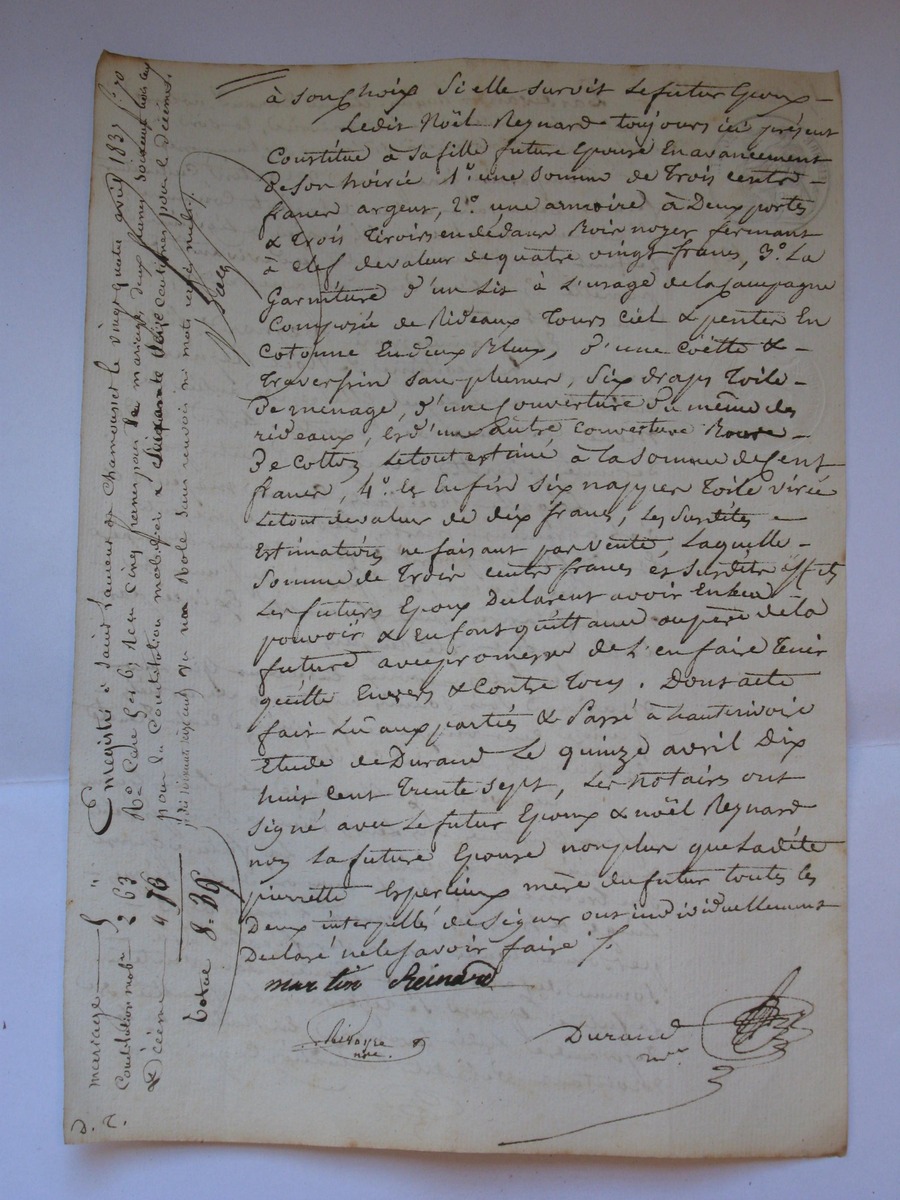 à son choix si elle survit le futur Epoux —
Ledit Noël Reynard toujours ici présent
Constitue à sa fille future Epouse En avancement
De son hoirie 1.° une somme de Trois cents —
francs argent, 2.° une armoire à Deux portes
& Trois Tiroirs en dédans Bois noyer fermant
à Clef de valeur de quatre vingt francs, 3.° La
Garniture d'un Lit à L'usage de la Campagne
Composée de Rideaux Tours Ciel & pentes En
Cotonne En deux Bleux, d'une Coëtte & —
Traversin sans plumes, Six draps Toile —
De menage, d'une Couverture du même des
rideaux, et d'une autre Couverture Rouse —
De Cotton, Le tout estimé à la somme de Cent
francs, 4.° Et Enfin six nappes Toile virée
Le tout de valeur de dix francs, Les susdites —
Estimations ne faisant pas vente, Laquelle —
Somme de Trois cents francs et susdits effets
Les futurs Epoux Declarent avoir En leur
pouvoir & en font quittance au père de la
future avec promesse de L'en faire Tenir
quitte Envers & Contre Tous. Dont acte
fait Lû aux parties & Passé à hauterivoire
Etude de Durand Le quinze avril Dix
huit Cent Trente Sept, Les notaires ont
Signé avec Le futur Epoux & noël Reynard
non La future Epouse non plus que Ladite
pierrette Esperieux mère du futur toutes les
Deux interpellés de Signer ont individuellement
Declaré ne le savoir faire /.
martin Reinard
nre.
Durand
nre
Enregistré à Saint Laurent de Chamousset le vingt quatre avril 1837 f.° 70
R.° Case 5 et 6, reçu cinq francs pour le mariage, deux francs soixante trois cent.
pour la Constitution mobiliere & soixante seize centimes pour le décime.
mariage — 5 "
Constitution mobre 2 63
Décime — " 76
total 8 = 39
D. R.